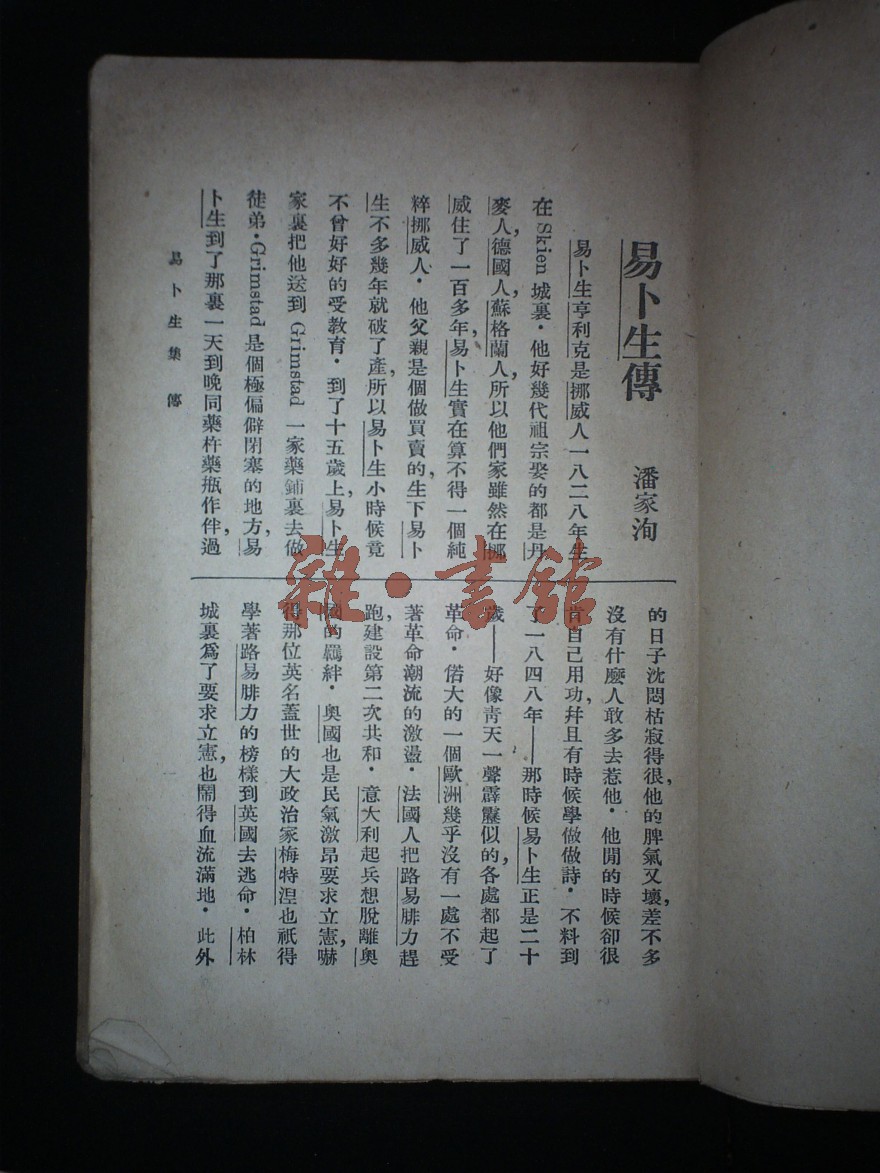 易卜生傳
潘家洵
易卜生亨利克是挪威人一八二八年生
在 Skien 城裏．他好幾代祖宗娶的都是丹
麥人，德國人，蘇格蘭人，所以他們家雖然在挪
威住了一百多年，易卜生實在算不得一個純
粹挪威人．他父親是個做買賣的，生下易卜
生不多幾年就破了產，所以易卜生小時候竟
不曾好好的受教育．到了十五歲上，易卜生
家裏把他送到 Grimstad 一家藥鋪裏去做
徒弟．Grimstad 是個極偏僻閉塞的地方，易
卜生到了那裏一天到晚同藥杵藥瓶作伴，過
的日子沈悶枯寂得很，他的脾氣又壞，差不多
沒有什麼人敢多去惹他．他閒的時候卻很
肯自己用功，幷且有時候學做做詩．不料到
了一八四八年——那時候易卜生正是二十
歲——好像靑天一聲霹靂似的，各處都起了
革命．偌大的一個歐洲幾乎沒有一處不受
著革命潮流的激盪．法國人把路易腓力趕
跑，建設第二次共和．意大利起兵想脫離奧
國的羈絆．奧國也是民氣激昂要求立憲，嚇
得那位英名蓋世的大政治家梅特涅也祇得
學著路易腓力的榜樣到英國去逃命．柏林
城裏爲了要求立憲，也鬧得血流滿地．此外
易卜生集 傳
雜·書館